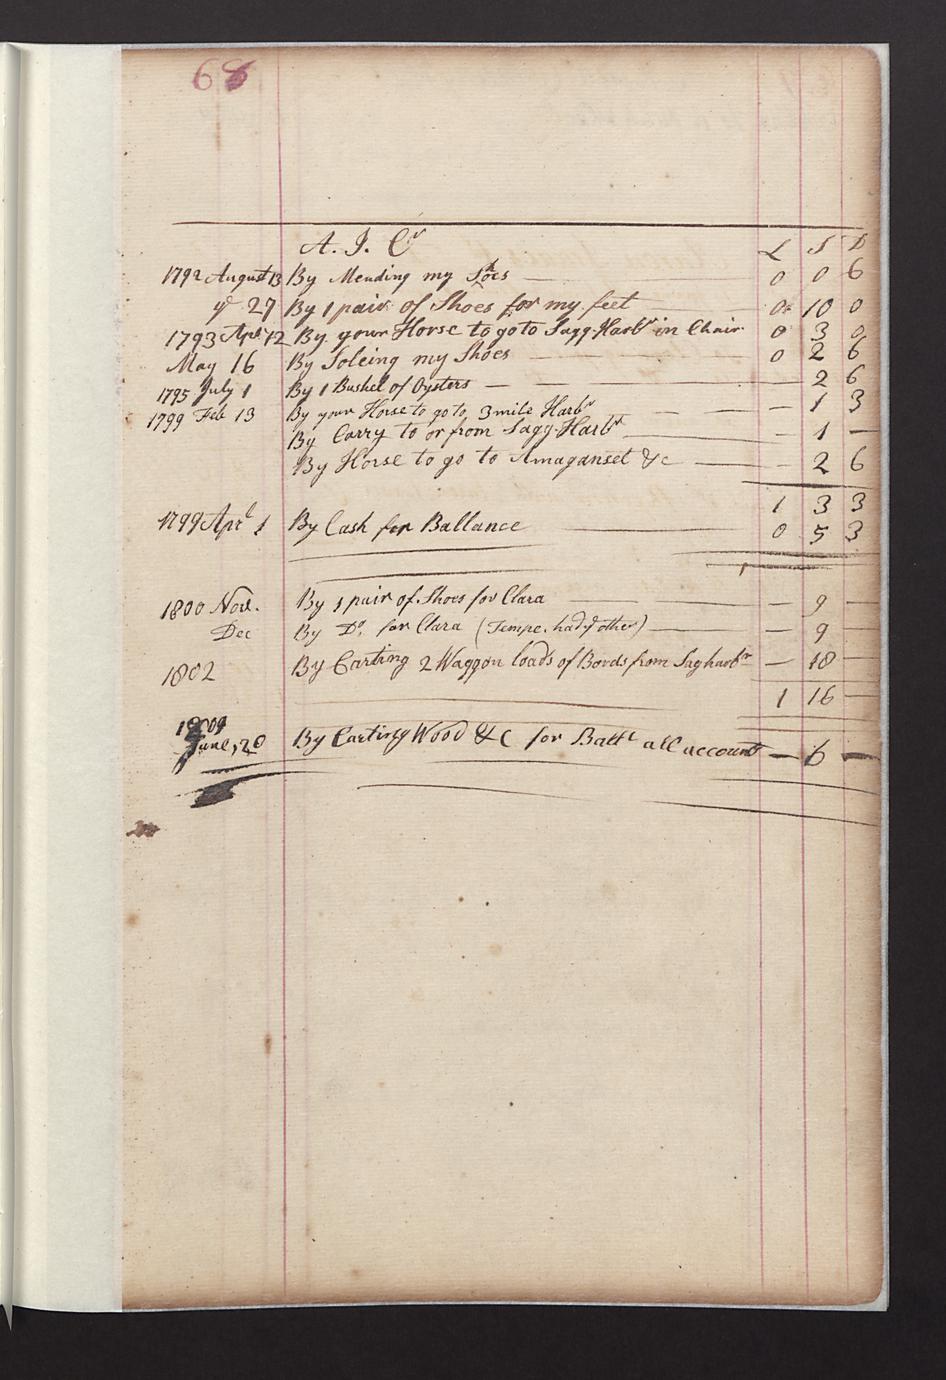 68
A. I. Cr L S D
1792 August 13 By Mending my Shoes 0 0 6
ye 27 By 1 pair of Shoes for my feet 0 10 0
1793 Aprl 12 By your Horse to go to Sagg-Harbr in Chair 0 3 0
May 16 By Soleing my Shoes 0 2 6
1795 July 1 By 1 Bushel of Oysters — — 2 6
1799 Feb 13 By your Horse to go to 3 mile Harbr — — 1 3
By Carry to or from Sagg-Harbr — 1 —
By Horse to go to Amaganset &c — — 2 6
1 3 3
1799 Aprl 1 By Cash for Ballance 0 5 3
1800 Novr. By 1 pair of Shoes for Clara — — 9 —
Dec By Do. for Clara (Tempe. had ye other) — — 9 —
1802 By Carting 2 Waggon loads of Bords from Sagharbr — 18 —
1 16 —
1809
June, 20 By Carting Wood &C for Ballc all account — 6 —